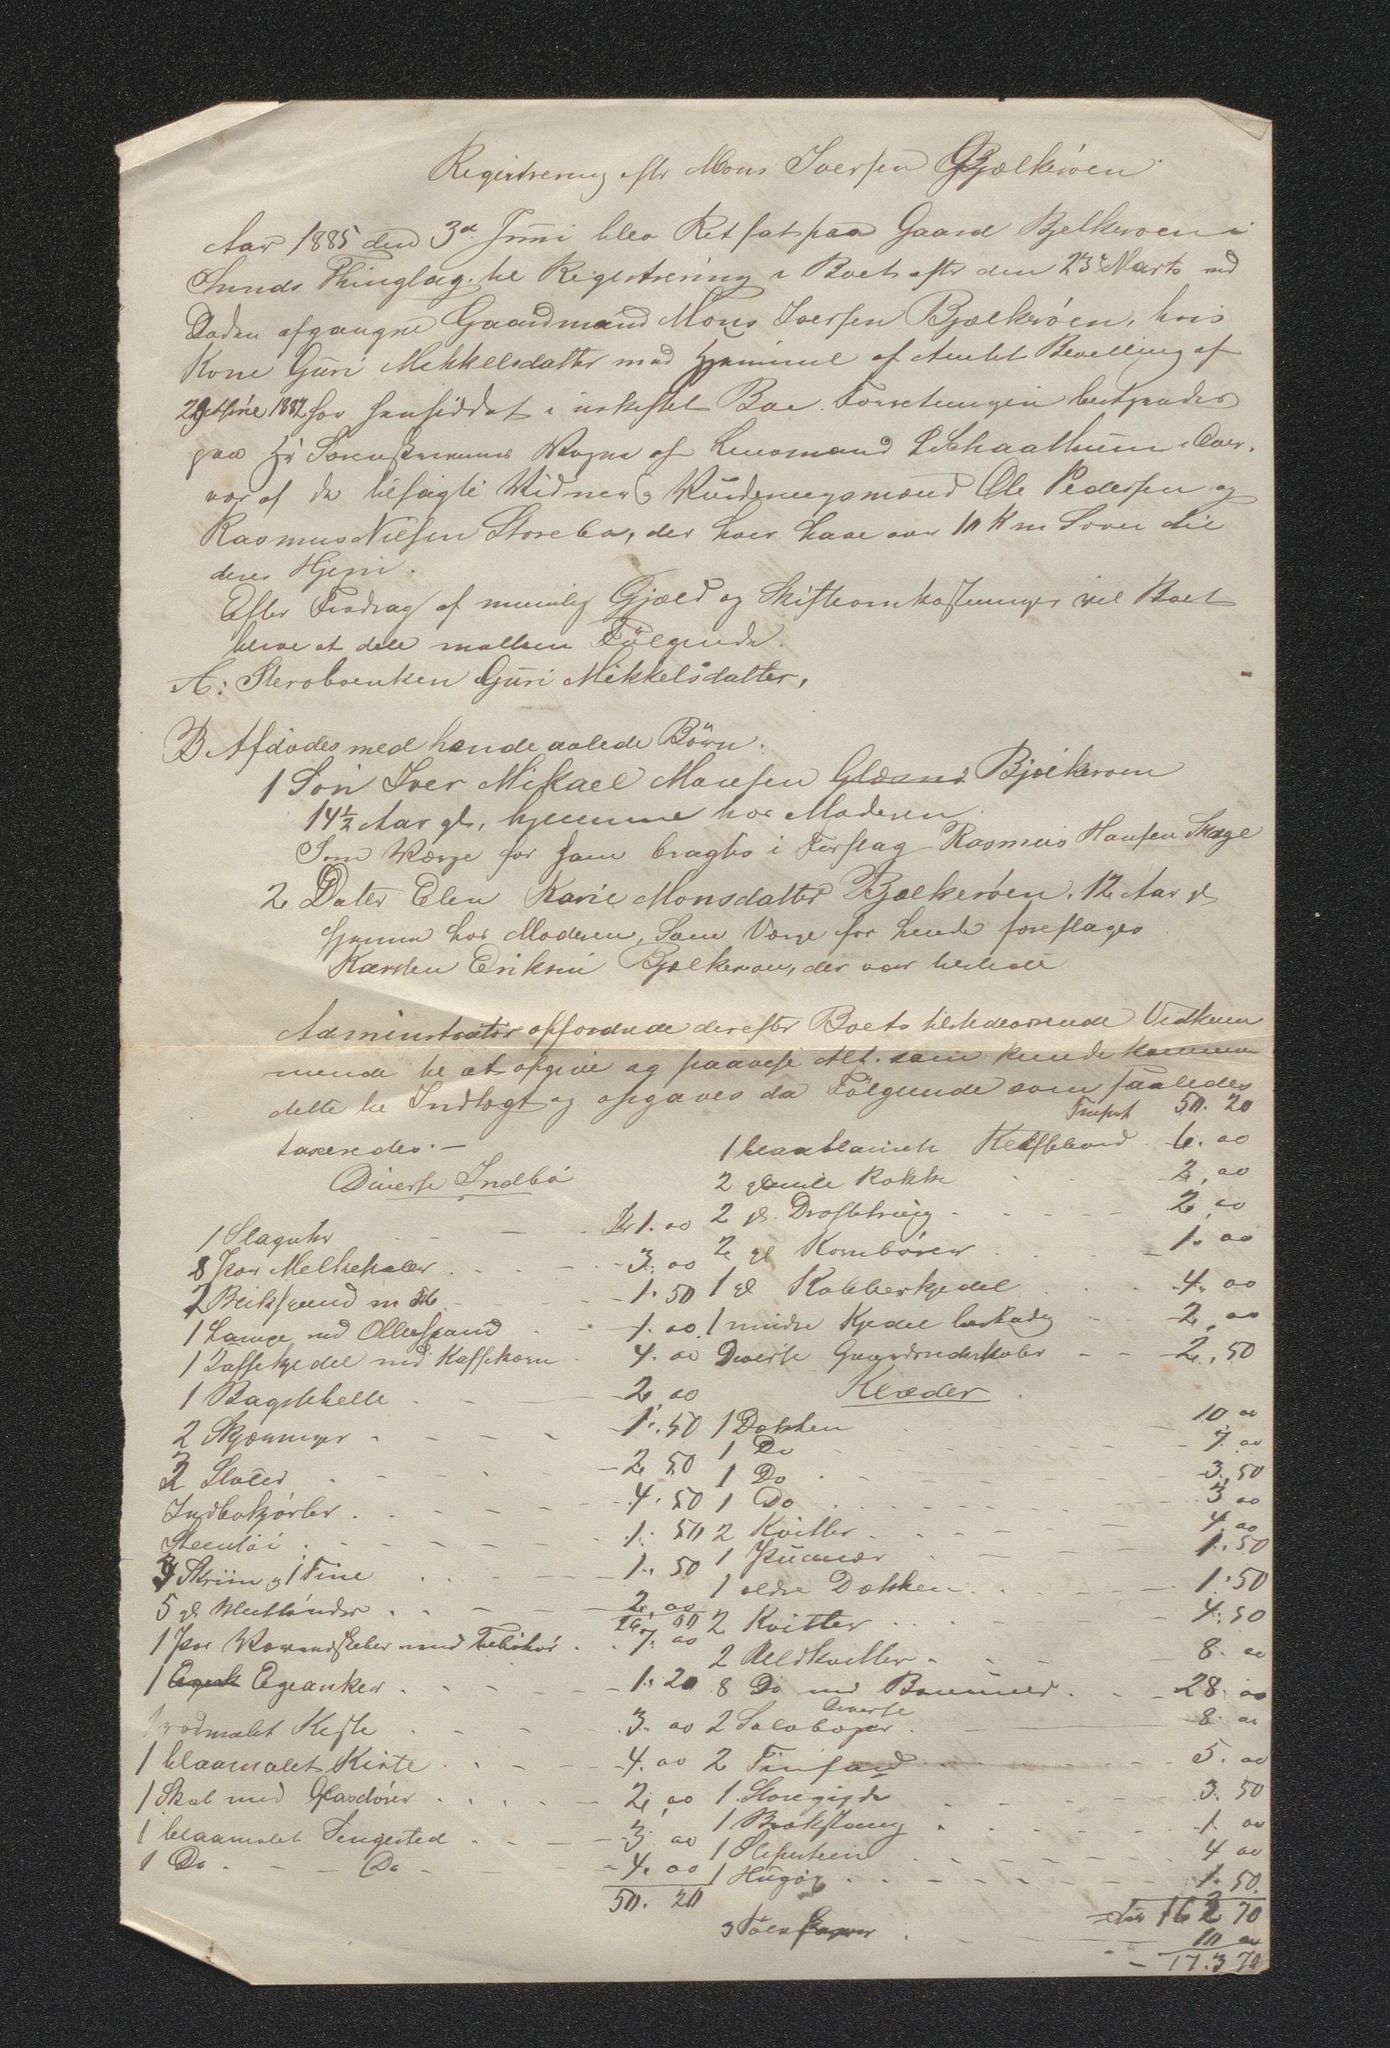 Registrering eftr Mons Iversen Bjælkeröen
Aar 1885 den 3d Juni blev Ret sat paa Gaard Bjelkeroen i
Sunds Thinglag til Registrering i Boet eftr den 23d Marts ved
Döden afgangne Gaardmand Mons Iversen Bjælkröen, hvis
Kone Guri Mikkelsdatter med Hjemmel af Amtet Bevilling af
1882 har hensiddet i uskiftet Boe. Forretningen betjentes
paa Hr Sorenskriverens Vegne af Lensmand Schaathun i Over-
vær af de tilsagte Vidner og Vurderingsmænd Ole Pedersen og
Rasmus Nilsen Storebö, der hver have over 10 Km Soven til
deres Hjem.
Efter Fradrag af muelig Gjæld og Skifteomkostninger vil Boet
blive at dele mellem Fölgende.
A: Sterboenken Guri Mikkelsdatter,
B Afdödes med hende avlede Börn:
1 Sön Iver Mikael Monsen Bjælkeroen
14½ Aar gl, hjemme hos Moderen.
Som Værge for ham bragtes i Forslag Rasmus Hansen Skage
2 Dater Elen Karie Monsdatter Bjælkeröen, 12 Aar gl
hjemme hos Moderen, Som Værge for hende foreslages
Karsten Eriksen Bjælkeroen, der var tilstede
Administrator opfordrede derefter Boets tilstedeværende Vedkom
mende til at opgive og paavise Alt som kunde komme
dette til Indtægt og opgaves da Fölgende som saaledes
taxeredes:—
Diverse Indbo
1 Slaguhr Kr 1. 00
8 par Melkekoler 3. 00
2 Blikspand 1. 50
1 Lampe med Oliespand 1. 00
1 Kaffekjedel med Kaffekværn 4. 00
1 Bagstehelle 2. 00
2 Skjæninger 1. 50
2 Stoler 2 50
Indbokjörler 4. 50
Steentöi 1. 50
Skrin og 1 Tine 1. 50
5 gl Meeltönder 2. 00
26 00
1 par Vævendskeber med Tilbehör 7. 00
1 Egeanker 1. 20
1 rødmalet Kiste 3. 00
1 blaamalet Kiste 4. 00
1 Skab med Glasdörer 2. 00
1 blaamalet Sengested 3 00
1 Do Do 4. 00
50. 20
Transport 50. 20
1 blaamalet Klaffebord 6. 00
2 gamle Rokke 2. 00
2 gl. Drosletrug 2. 00
2 gl Kornbörer 1. 00
1 gl Kobberkjedel 4. 00
1 mindre Kjedel beskadig 2. 00
Diverse Gaardsredskaber 2. 50
Klæder
1 Dækken 10 00
1 Do 7. 00
1 Do 3. 50
1 Do 3 00
2 Kvitler 4. 00
1 Puuvær 1. 50
1 ældre Dækken 1. 50
2 Kvitler 4. 50
2 Kvitler 8. 00
8 Do med Bommuld 28. 00
2 Diverse Salvboger 8. 00
2 5. 00
1 Storegigde 3. 50
1 Brækstang 1 00
1 Slipesteen 4 00
1 Hugöx 1. 50
162 70
3 10 00
17.3 70